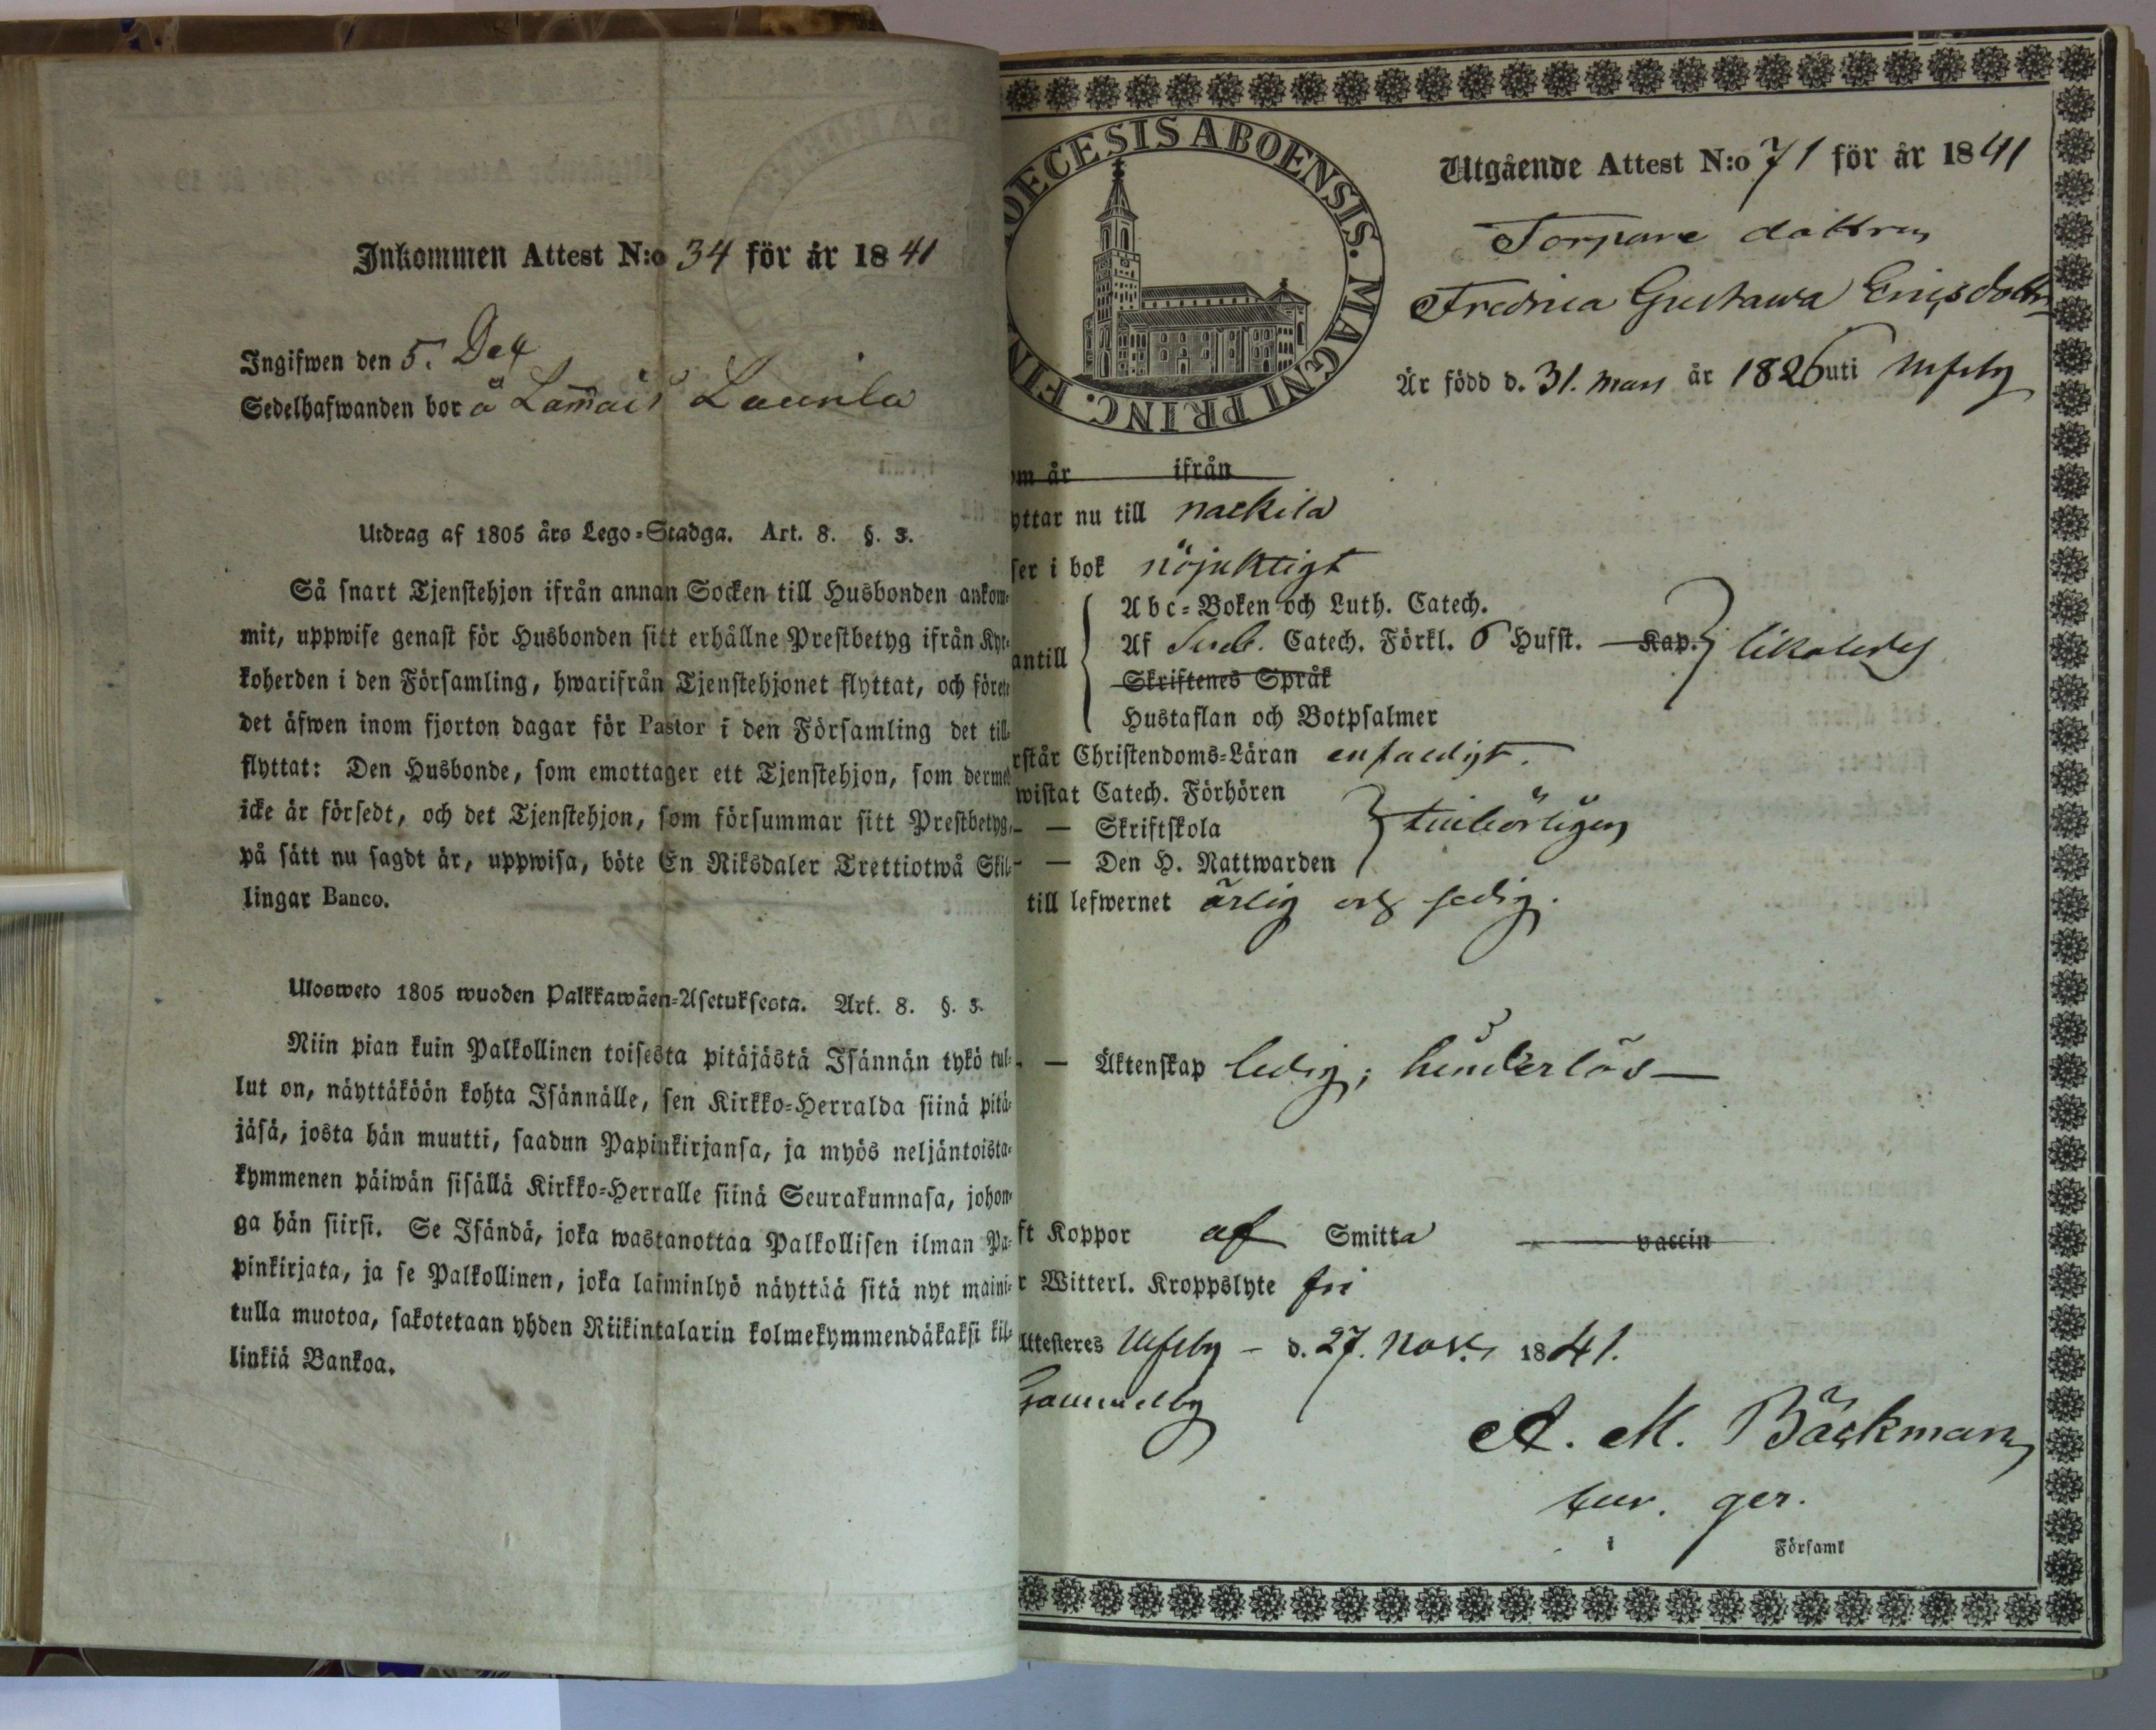 Inkommen Attest N:o 34 för år 1841
Ingifwen den 5. Dec
Sedelhafwanden bor å Lam̄ais Laurila
Utdrag af 1805 års Lego-Stadga. Art. 8. §. 3.
Så snart Tjenstehjon ifrån annan Socken till Husbonden ankom-
mit, uppwise genast för Husbonden sitt erhållne Prestbetyg ifrån Kyr-
koherden i den Församling, hwarifrån Tjenstehjonet flyttat, och förete
det äfwen inom fjorton dagar för Pastor i den Församling det till-
flyttat: Den Husbonde, som emottager ett Tjenstehjon, som dermed
icke är försedt, och det Tjenstehjon, som försummar sitt Prestbetyg,
på sätt nu sagdt är, uppwisa, böte En Riksdaler Trettiotwå Skil-
lingar Banco.
Ulosweto 1805 wuoden Palkkawäen-Asetuksesta. Art. 8. §. 3.
Niin pian kuin Palkollinen toisesta pitäjästä Isännän tykö tul-
lut on, näyttäköön kohta Isännälle, sen Kirkko-Herralda siinä pitä-
jäsä, josta hän muutti, saadun Papinkirjansa, ja myös neljäntoista-
kymmenen päiwän sisällä Kirkko-Herralle siinä Seurakunnasa, johon-
ga hän siirsi. Se Isändä, joka wastanottaa Palkollisen ilman Pa-
pinkirjata, ja se Palkollinen, joka laiminlyö näyttää sitä nyt maini-
tulla muotoa, sakotetaan yhden Riikintalarin kolmekymmendäkaksi kil-
linkiä Bankoa.
OECESIS ABOENSIS. MAGNI PRINC. FIN
Utgående Attest N:o 71 för år 1841
Torpare dottren
Fredrica Gustawa Ericsdotter
Är född d. 31. mars år 1826 uti Ulfsby
om år ifrån
yttar nu till nackila
ser i bok nöjaktigt
antill
Abc-Boken och Luth. Catech.
Af Sveb. Catech. Förkl. 6 Hufst. Kap. likaledes
Skriftenes Språk
Hustaflan och Botpsalmer
rstår Christendoms-Läran enfaldigt.
wistat Catech. Förhören
– — Skriftskola tillbörligen
– — Den H. Nattwarden
till lefwernet ärlig och sedig.
– — Äktenskap ledig; hinderlös —
ft Koppor af Smitta vaccin
r Witterl. Kroppslyte fri
Attesteres Ulfsby – d. 27. Nov. 1841.
Gammelby
A. M. Bäckman
cur. ger.
i Församl